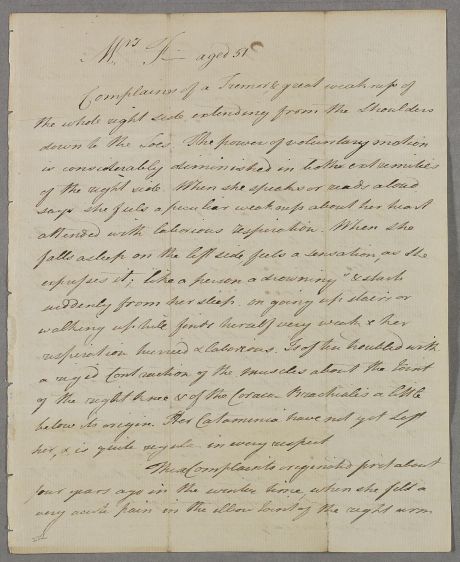 Mrs F— aged 51
Complains of a Tremor & great weakness of
the whole right side extending from the Shoulders
down to the toes. The power of voluntary motion
is considerably diminished in both extremities
of the right side. When she speaks or reads aloud
says she feels a peculiar weakness about her heart
attended with laborious respiration. When she
falls asleep on the left side feels a sensation, as she
expresses it, "like a person a drowning" & starts
suddenly from her sleep. on going up stairs or
walking up hill finds herself very weak & her
respiration hurried & laborious. Is often troubled with
a rigid Contraction of the muscles about the Joint
of the right knee & of the Coraco-Brachiales a little
below its origin. Her Catamenia have not yet left
her, & is quite regular in every respect
These Complaints originated first about
four years ago in the winter time, when she felt a
very acute pain in the elbow Joint of the right arm